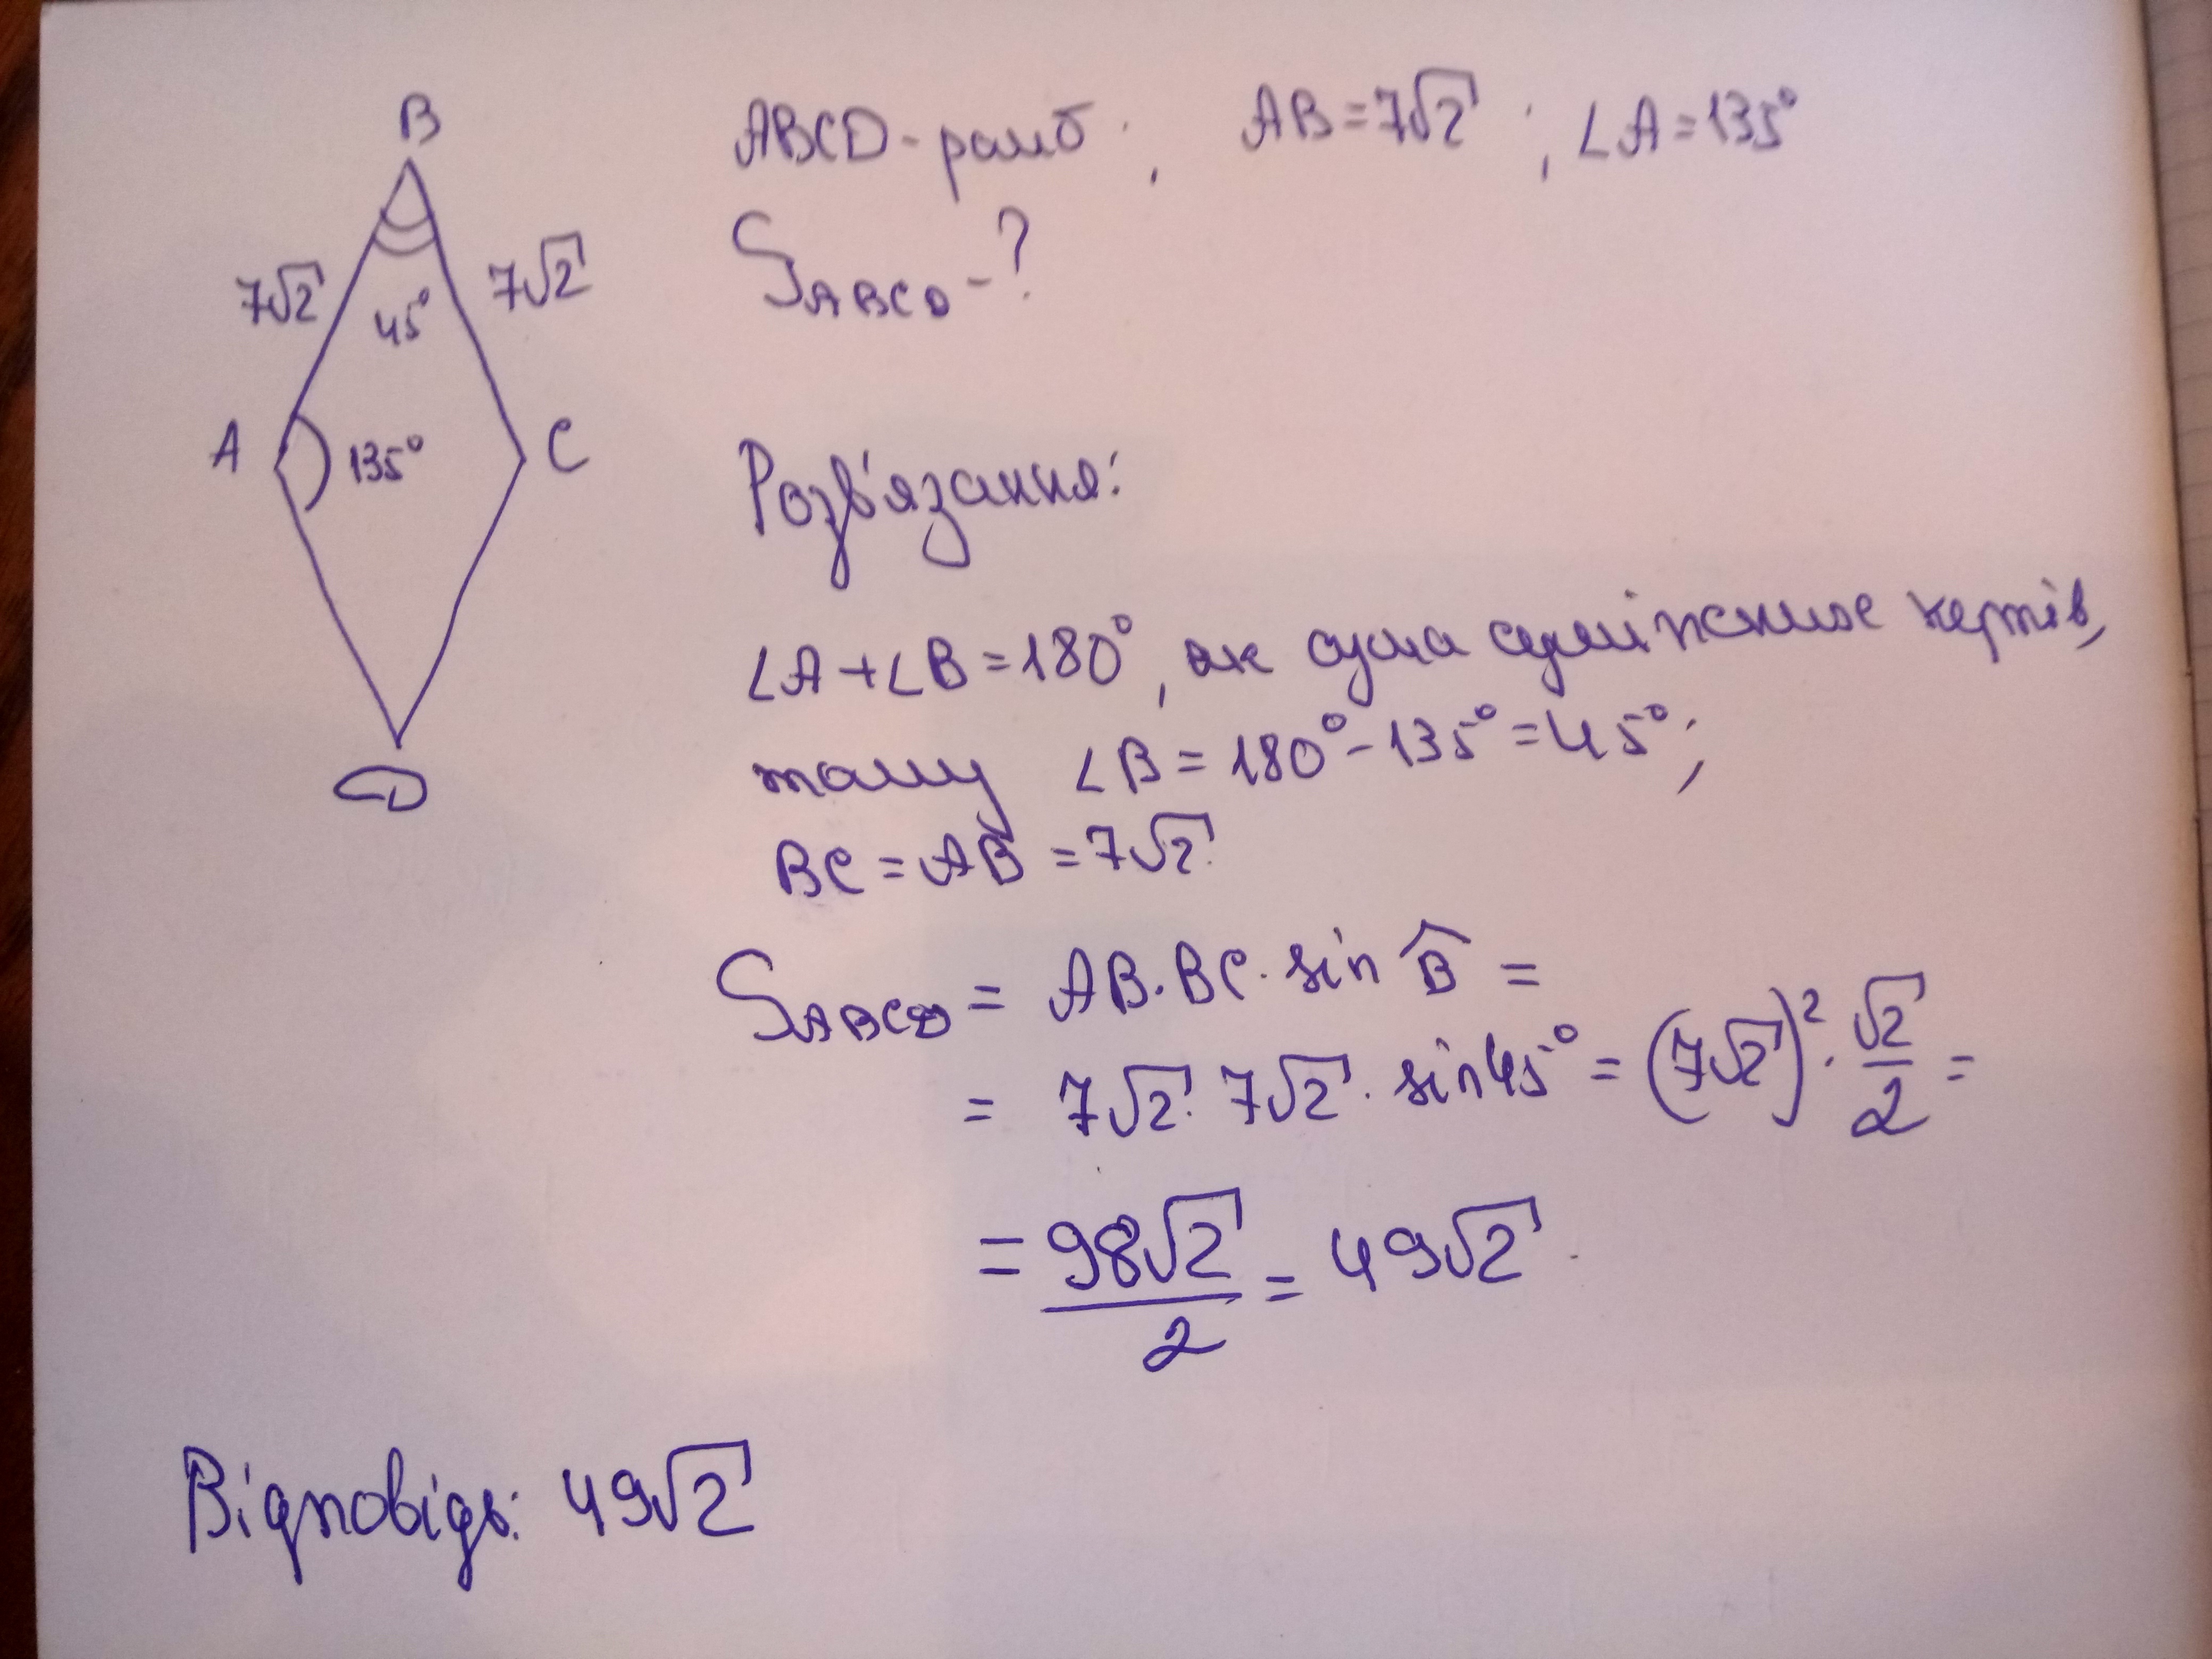 B
7√2
7√2
45°
A
135°
C
D
ABCD - ромб; AB = 7√2; ∠A = 135°
S ABCD - ?
Розв'язання:
∠A + ∠B = 180°, як сума суміжних кутів,
тому ∠B = 180° - 135° = 45°;
BC = AB = 7√2.
S ABCD = AB · BC · sin B̂ =
= 7√2 · 7√2 · sin 45° = (7√2)² · √2/2 =
= 98√2/2 = 49√2.
Відповідь: 49√2